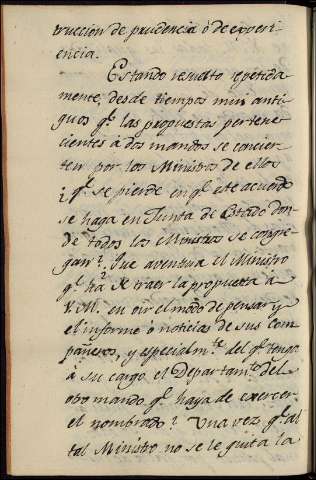 truccion de prudencia ò de experi-
encia.
Estando resuelto repetida
mente, desde tiempos mui anti-
guos q.e las propuestas pertene
cientes à dos mandos se concier-
ten por los Ministros de ellos
¿q.e se pierde en q.e este acuerdo
se haga en Junta de Estado don-
de todos los Ministros se congre-
gan? Que aventura el Ministro
q.e ha de traer la propuesta à
V.M. en oir el modo de pensar y
el informe ò noticias de sus com
pañeros, y especialm.te del q.e tenga
à su cargo el Departam.to del
otro mando q.e haya de exercer
el nombrado? Una vez q.e al
tal Ministro no se le quita la